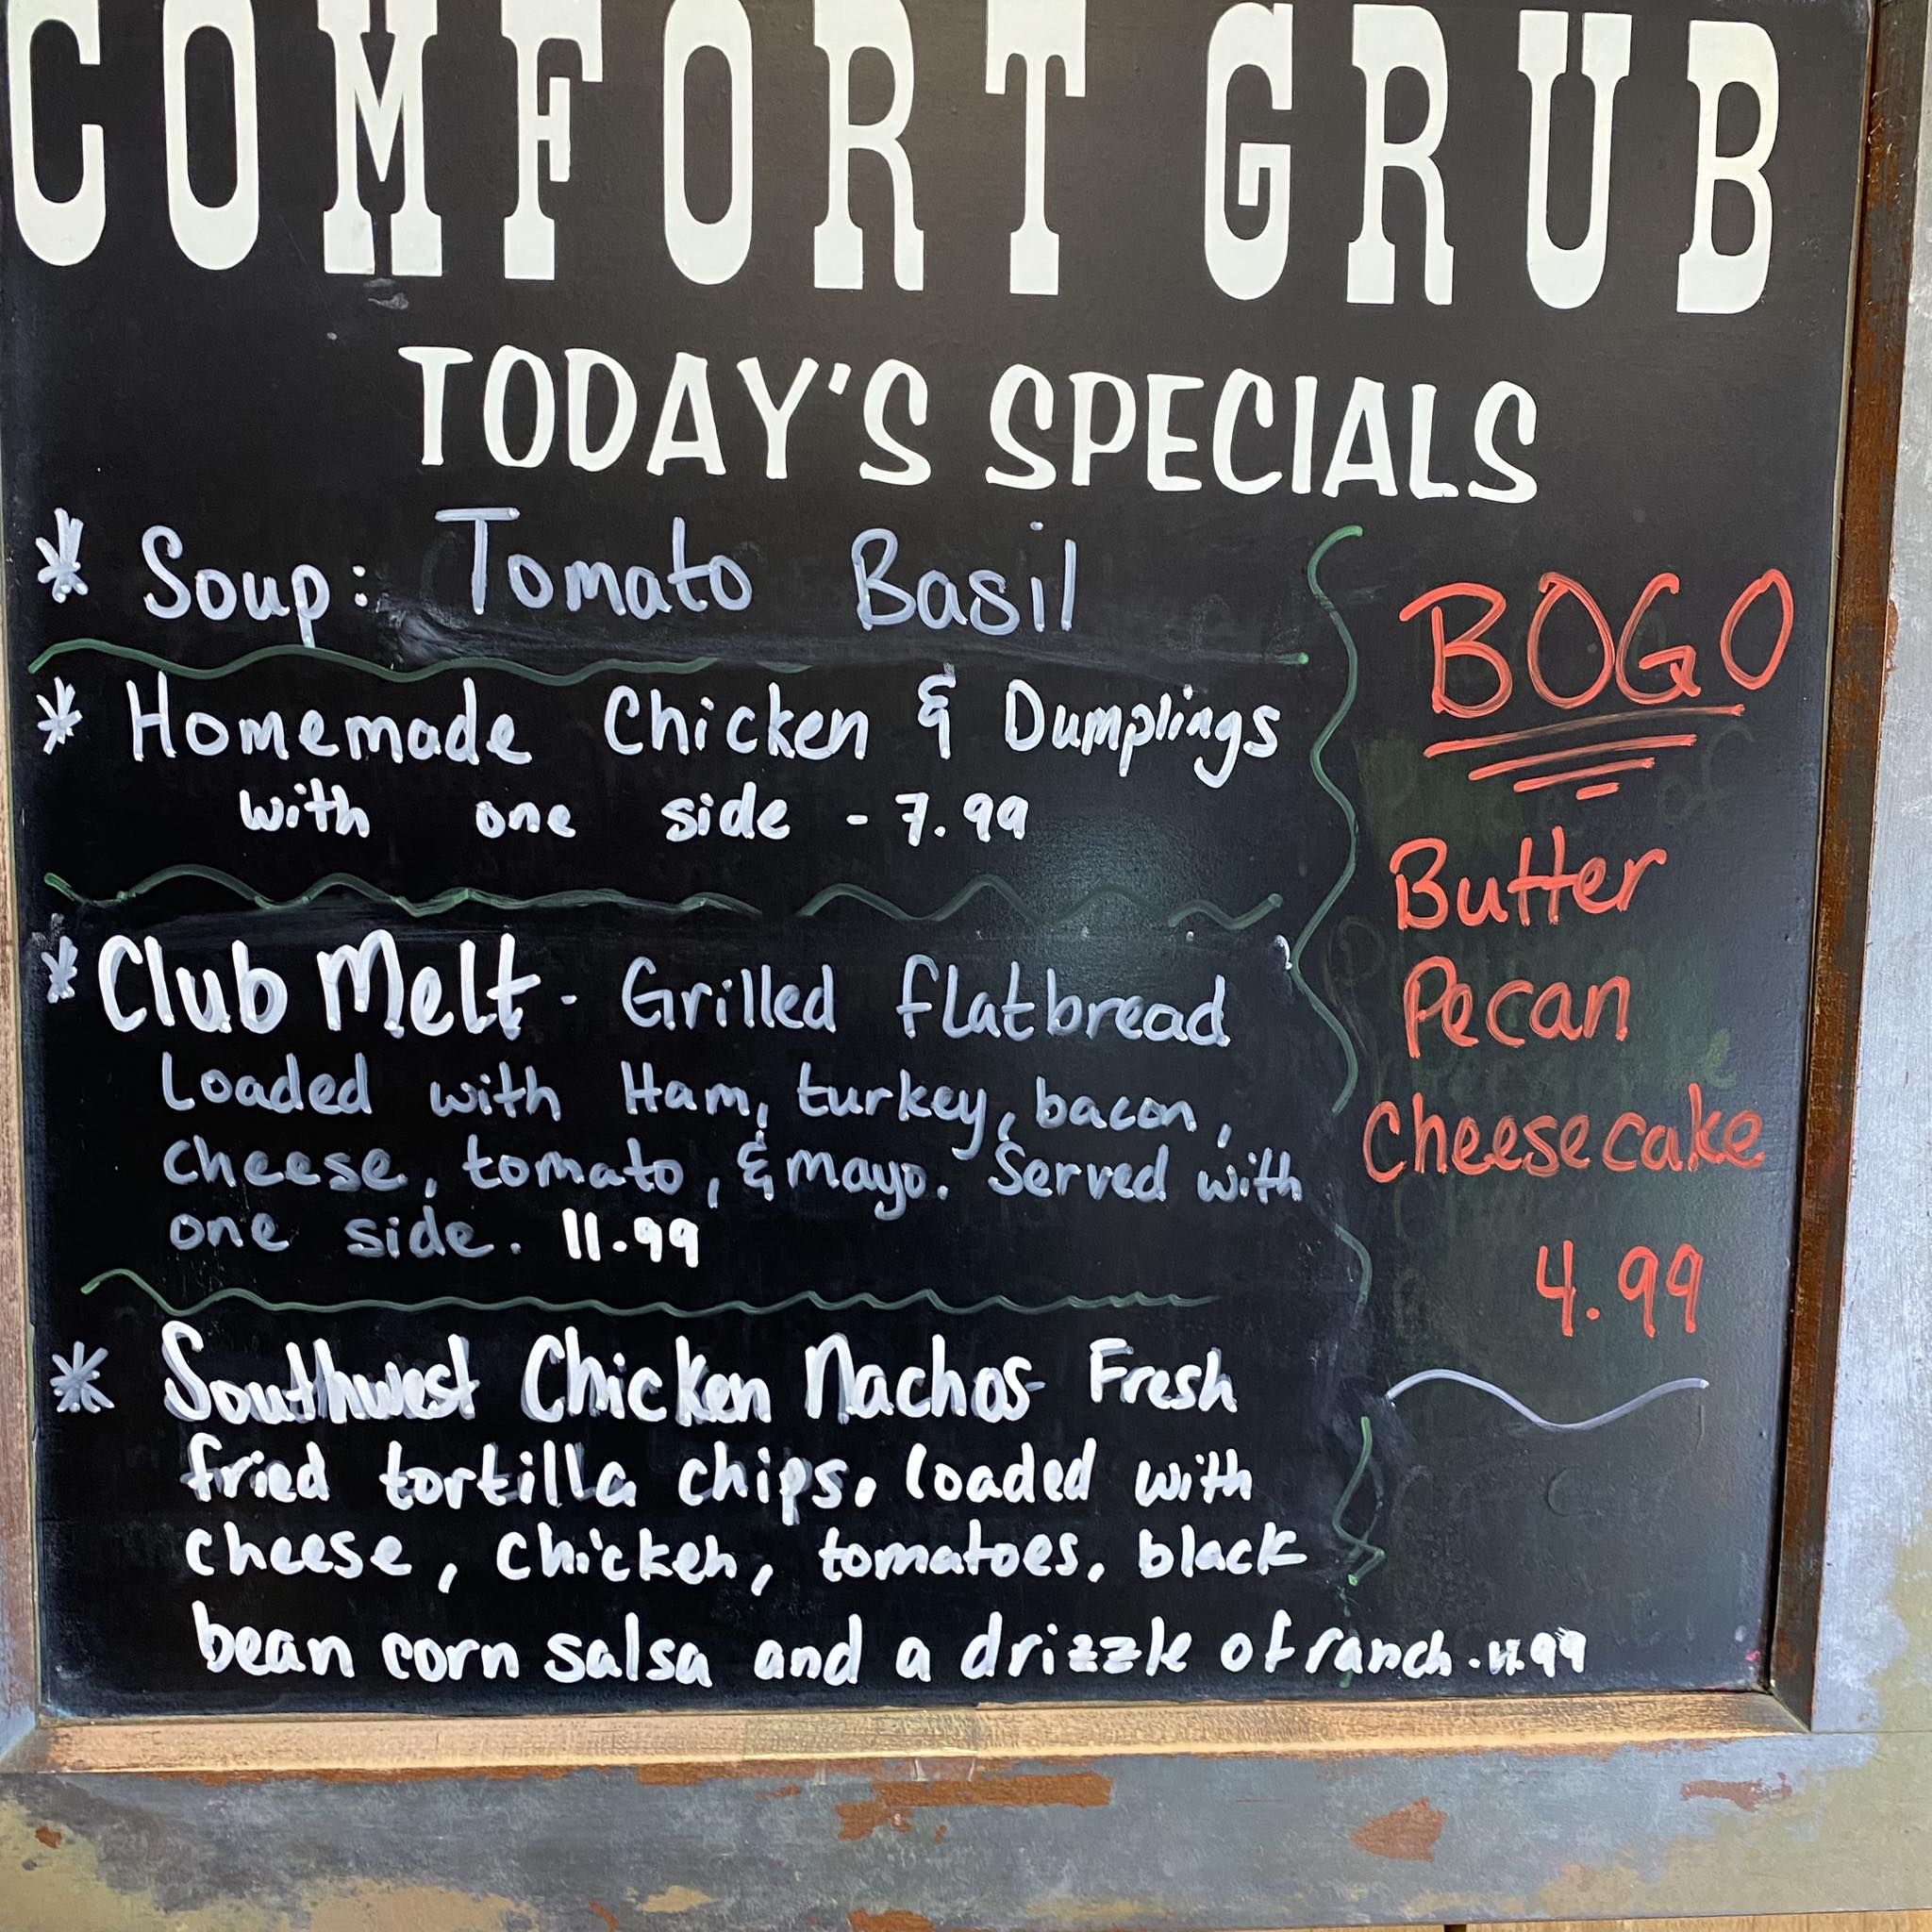 COMFORT GRUB
TODAY'S SPECIALS
* Soup: Tomato Basil
* Homemade Chicken & Dumplings
with one side - 7.99
* Club Melt - Grilled flatbread
Loaded with Ham, turkey, bacon,
cheese, tomato, & mayo. Served with
one side. 11.99
* Southwest Chicken Nachos - Fresh
fried tortilla chips, loaded with
cheese, chicken, tomatoes, black
bean corn salsa and a drizzle of ranch.
BOGO
Butter
Pecan
Cheesecake
4.99